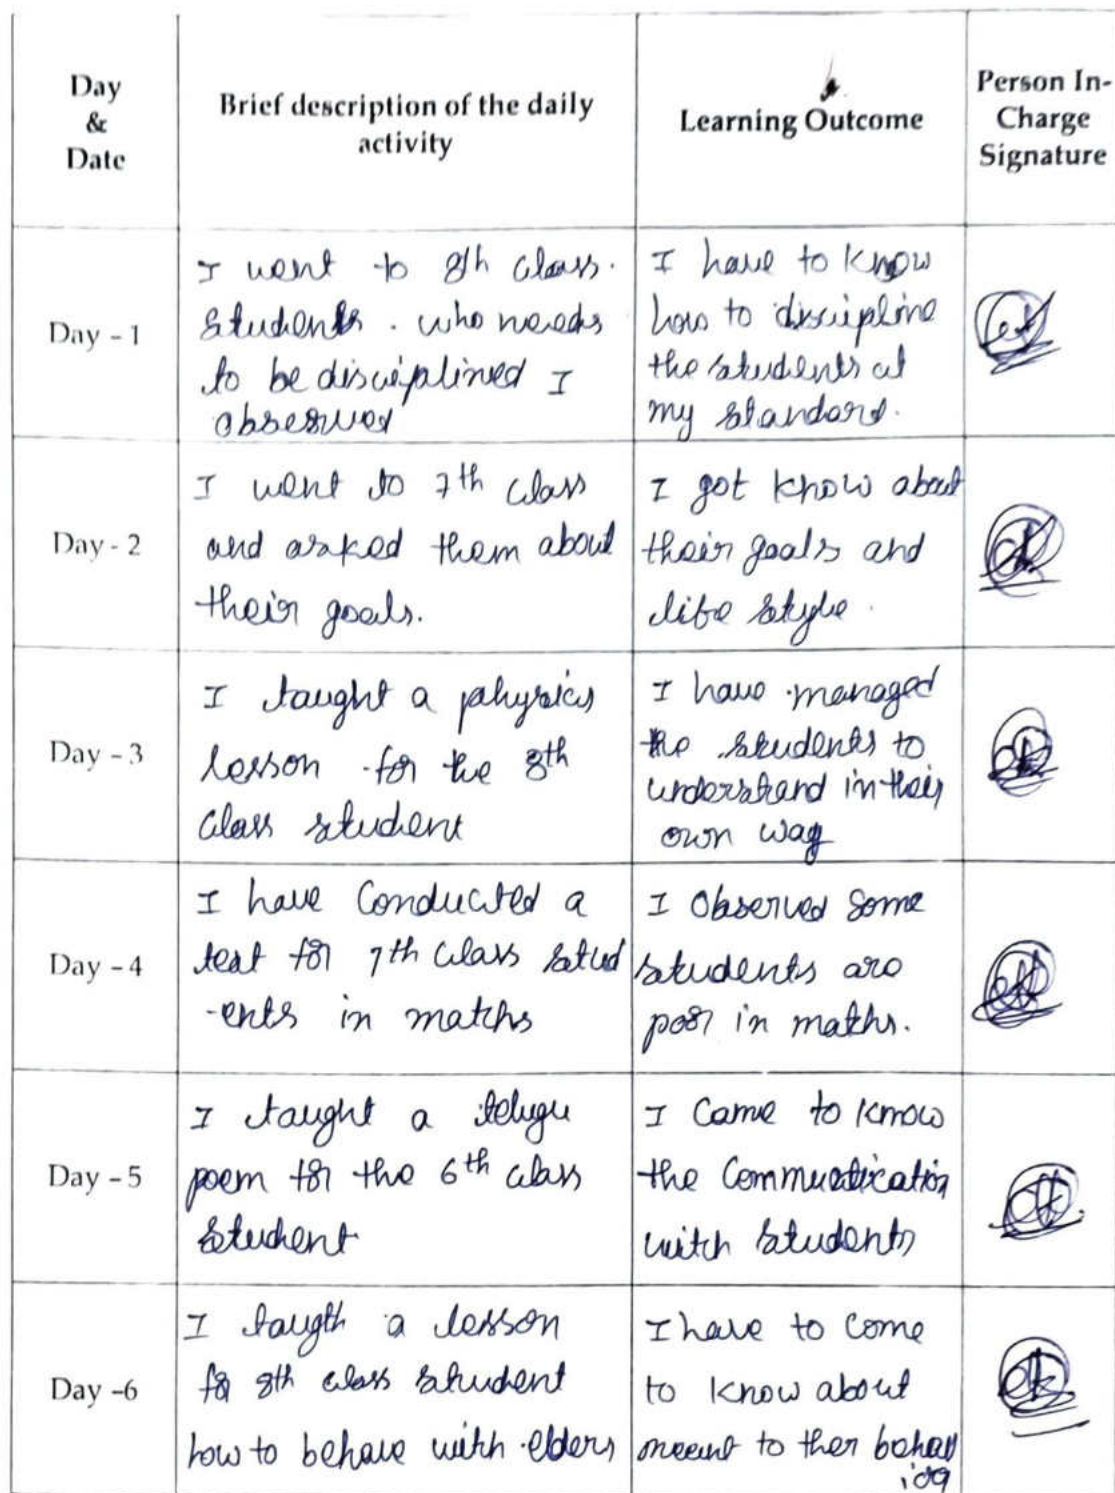 Day
&
Date
Brief description of the daily
activity
Learning Outcome
Person In-
Charge
Signature
Day - 1
I went to 8th class.
students. who needs
to be disciplined I
observed
I have to know
how to discipline
the students at
my standard.
Day - 2
I went to 7th class
and asked them about
their goals.
I got know about
their goals and
life style.
Day - 3
I taught a pahysics
lesson for the 8th
class student
I have managed
the students to
understand in their
own way
Day - 4
I have Conducted a
test for 7th class stud
-ents in maths
I Observed Some
students are
poor in maths.
Day - 5
I taught a telugu
poem for the 6th class
student
I Came to know
the
with students
Day -6
I taugth a lesson
for 8th class student
how to behave with elders
I have to come
to know about
to ther